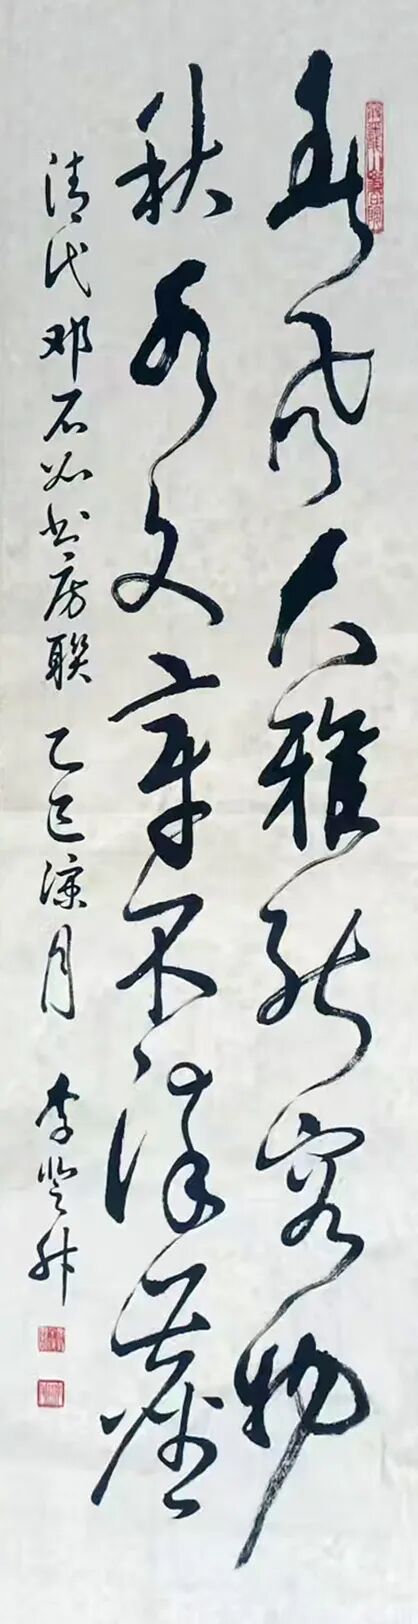 春风大雅能容物
秋水文章不染尘
清代邓石如书房联 乙巳凉月 李登科